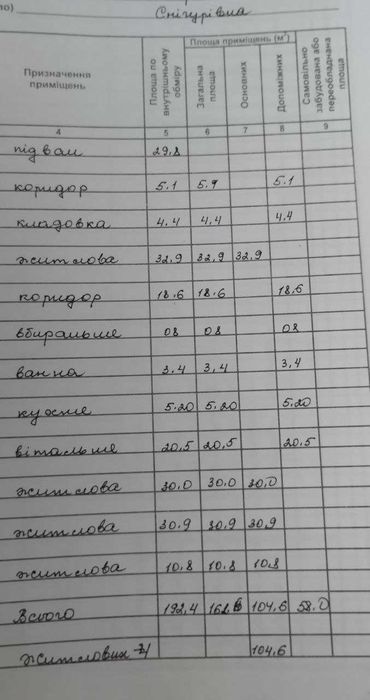 но)
Снігурівна
Призначення приміщень
Площа по внутрішньому обміру
Площа приміщень (м²)
Загальна площа
Основних
Допоміжних
Самовільно забудована або переобладнана площа
4 5 6 7 8 9
підвал 29,8
коридор 5.1 5.1 5.1
кладовка 4.4 4.4 4.4
житлова 32,9 32,9 32,9
коридор 18.6 18.6 18.6
вбиральне 08 08 08
ванна 3,4 3,4 3,4
кухне 5.20 5.20 5.20
вітальне 20,5 20,5 20,5
житлова 30,0 30,0 30,0
житлова 30.9 30,9 30,9
житлова 10.8 10.8 10.8
Всього 192,4 104,6 58.0
житлових 104,6